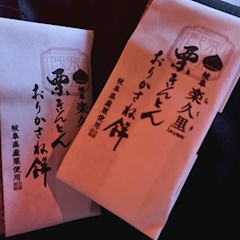 栗きんとん
おりかさね餅
岐阜県産栗使用
岐阜 楽久里
栗きんとん
おりかさね餅
岐阜県産栗使用